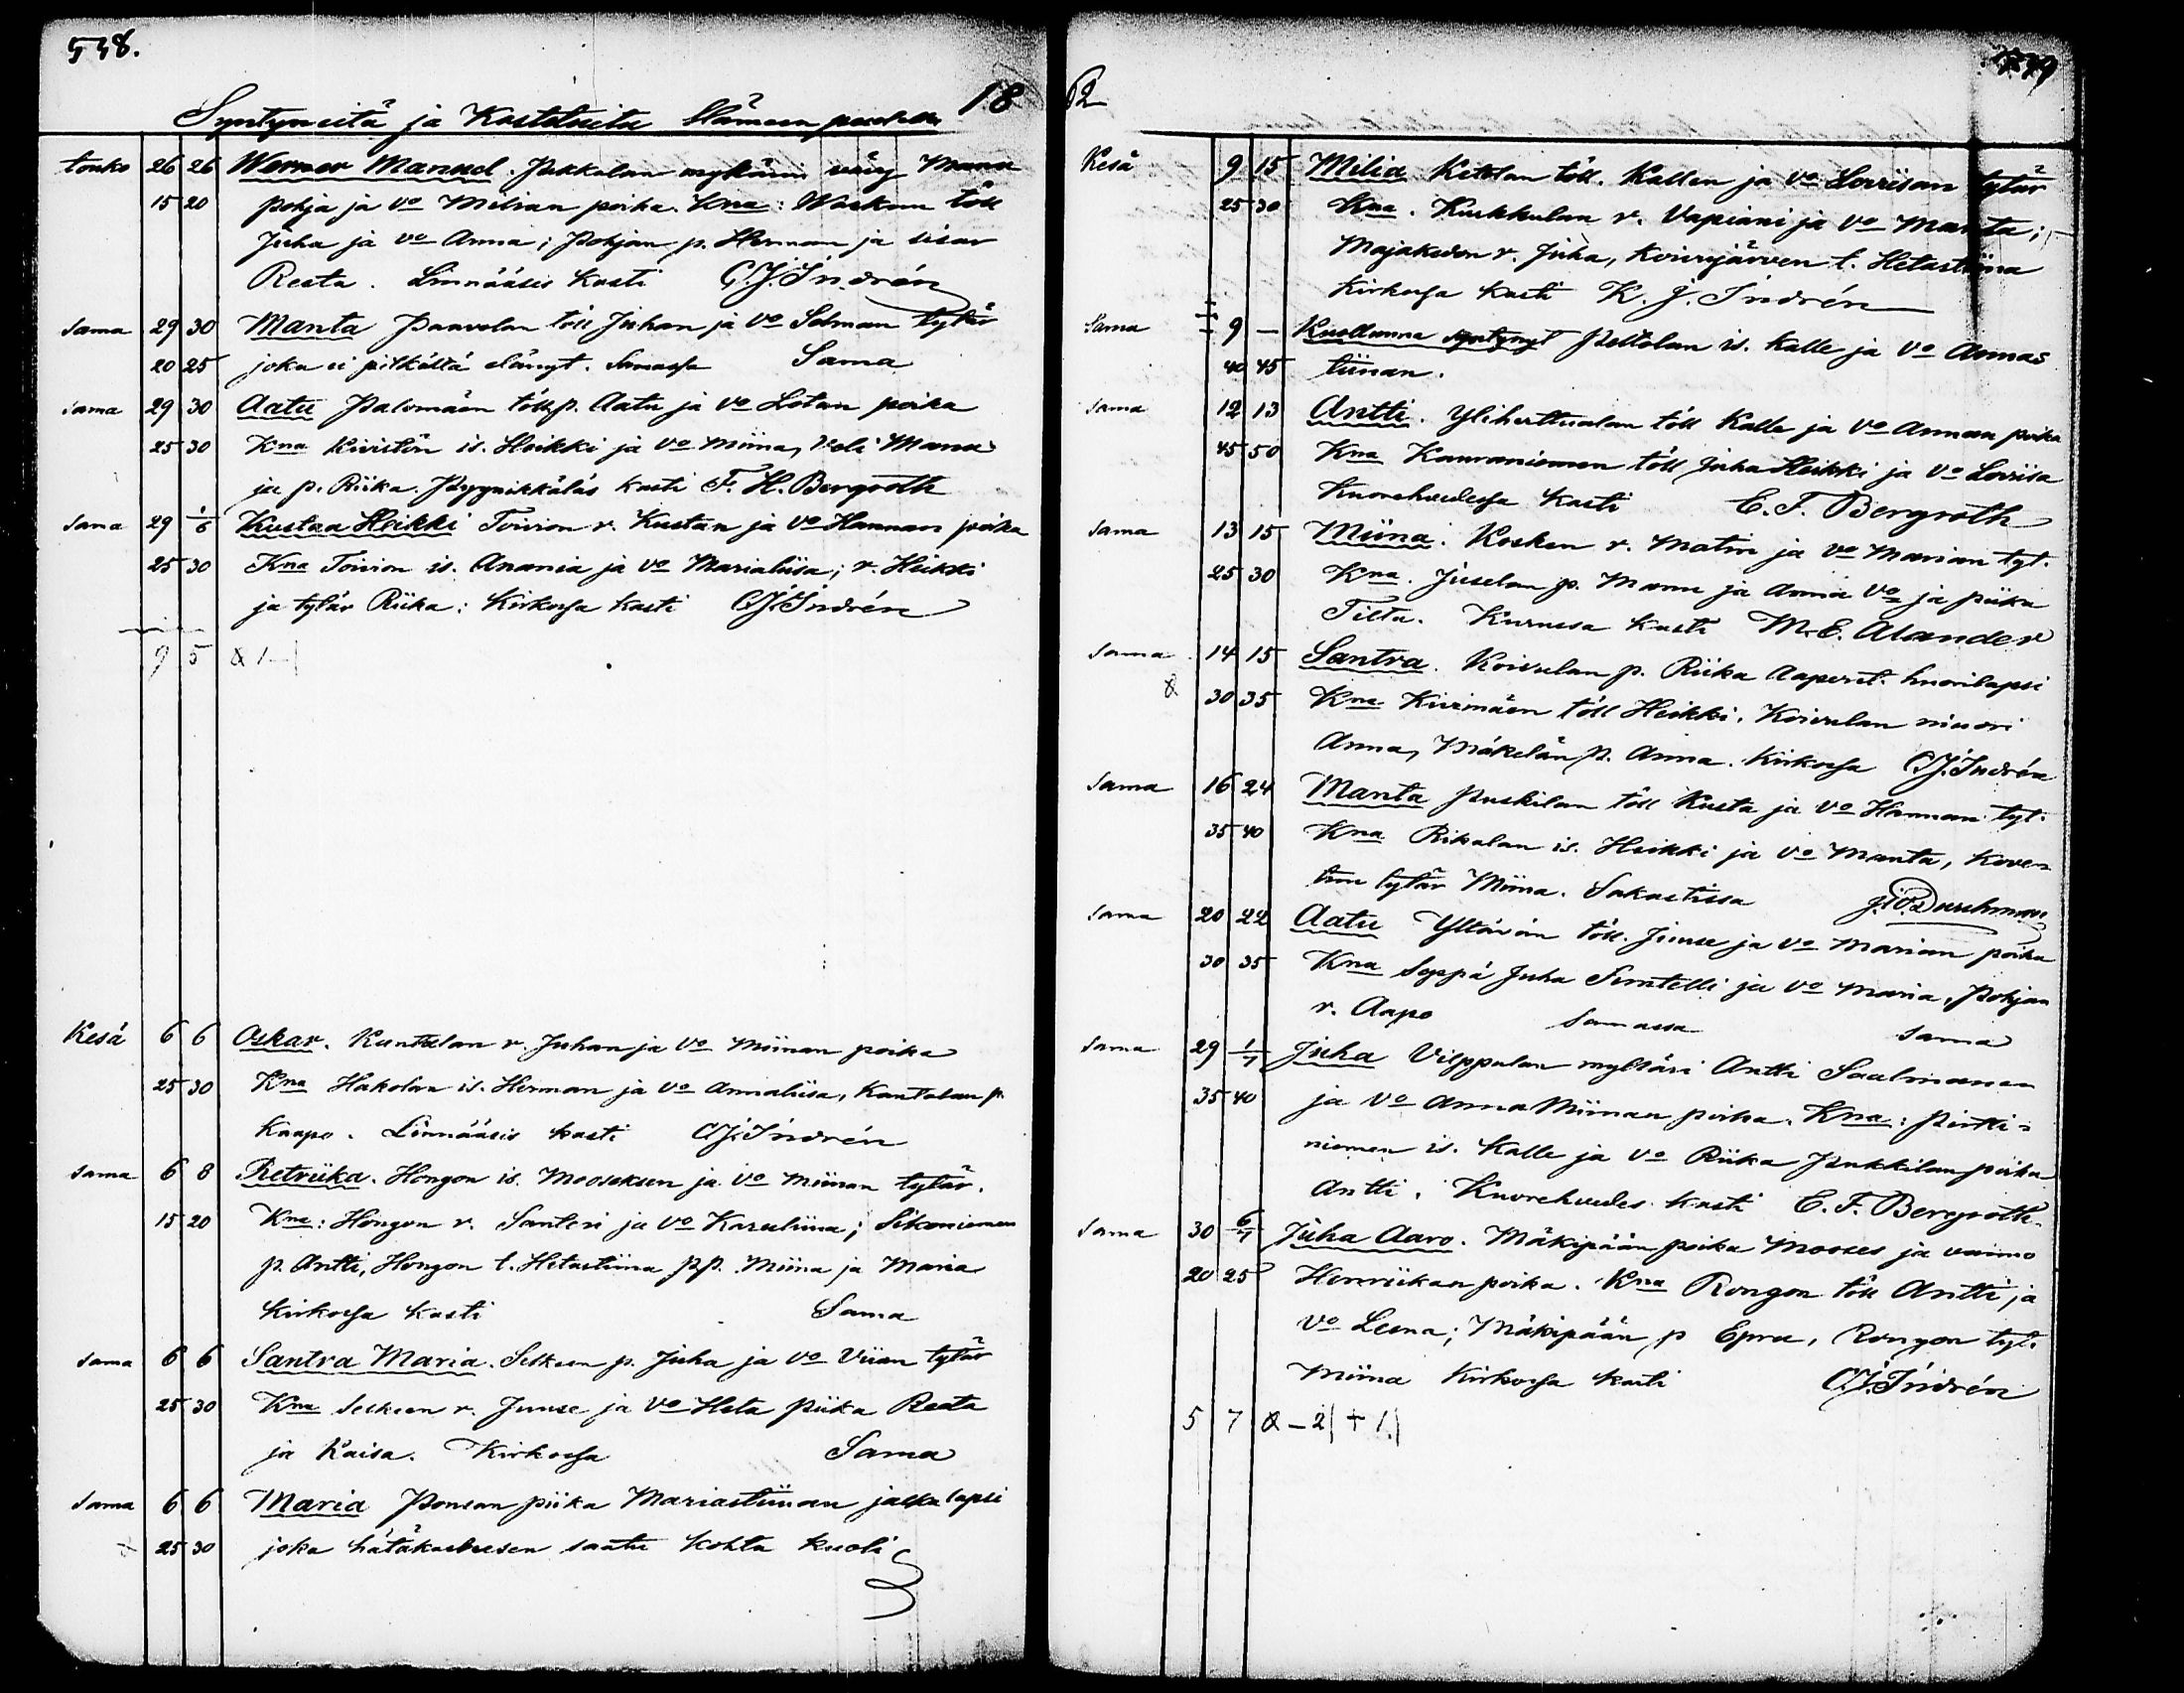 548.
18
Syntyneitä ja Kastetuita Hämeen puolella
touko 26 26 Werner Manuel. Pekkalan mylläri
15 20 pohja ja vo Milian poika. Kna: Waskun töll
Juha ja vo Anna; Pohjan p. Herman ja sisar
Reeta. Linnääsis kasti C.J. Indrén
sama 29 30 Manta Paavolan töll Juhan ja vo Selman tytär
20 25 joka ei pitkältä elänyt. Samassa Sama
sama 29 30 Aatu Palomäen töllp. Aatu ja vo Lotan poika
25 30 Kna Kivistön is. Heikki ja vo Miina, Veli Manu
ja p. Riika. Pyynikkäläs kasti F. H. Bergroth
sama 29 1/6 Kustaa Heikki Toivion r. Kustan ja vo Hannan poika
25 30 Kna Toivion is. Anania ja vo Marialiisa; r. Heikki
ja tytär Riika: Kirkossa kasti C.J. Indrén
9 5 & 1-
Kesä 6 6 Oskar. Kuntalan r. Juhan ja vo Miinan poika
25 30 Kna Hakolan is. Herman ja vo Annaliisa, Kantolan p.
Kaapo. Linnääsis kasti C.J. Indrén
sama 6 8 Retriika. Hongon is. Mooseksen ja vo Miinan tytär.
15 20 Kna: Hongon r. Santeri ja vo Karuliina; Sikoniemen
p. Antti, Hongon t. Hetastiina pp. Miina ja Maria
Kirkossa kasti Sama
sama 6 6 Santra Maria. Selkeen p. Juha ja vo Viian tytär
25 30 Kna Selkeen r. Juuse ja vo Heta piika Reeta
ja Kaisa. Kirkossa Sama
sama 6 6 Maria Ponsan piika Mariastiinan jalkalapsi
25 30 joka hätäkasteesen saatu kohta kuoli
62
Kesä 9 15 Milia Ketolan töll. Kallen ja vo Loviisan tytär
25 30 Kna. Kukkulan r. Vapiani ja vo Manta;
Majakedon r. Juha, Koivujärven t. Hetastiina
Kirkossa kasti K. J. Indrén
Sama 9 — Kuollunna syntynyt Peltolan is. Kalle ja vo Annas
40 45 tiinan.
sama 12 13 Antti. Ylihuttualan töll Kalle ja vo Annan poika
45 50 Kna Kauraniemen töll Juha Heikki ja vo Loviisa
Kuorehvedessa kasti E. F. Bergroth
sama 13 15 Miina. Kosken r. Matin ja vo Marian tyt.
25 30 Kna. Juselan p. Manu ja Anna vo ja piika
Tilta. Kurussa kasti M. E. Alander
sama 14 15 Santra. Koivulan p. Riika Aaperet. huorilapsi
30 35 Kna Kivimäen töll Heikki. Koivulan nuori
Anna, Mäkelän p. Anna. Kirkossa C.J. Indrén
sama 16 24 Manta Puskilan töll Kusta ja vo Hannan tyt.
35 40 Kna Rikalan is. Heikki ja vo Manta, Koven
tun tytär Miina. Sakastissa
sama 20 22 Aatu Yltävän töll. Juuse ja vo Marian poika
30 35 Kna Seppä Juha Simtelli ja vo Maria, Pohjan
r. Aapo samassa sama
sama 29 1/7 Juha Vilppulan mylläri Antti Saalmanen
35 40 ja vo Anna Miinan poika. Kna: Pirtti-
niemen is. Kalle ja vo Riika Pukkilan poika
Antti. Kuorehvedes kasti E. F. Bergroth
sama 30 6/7 Juha Aaro. Mäkipään poika Mooses ja vaimo
20 25 Henriikan poika. Kna Rongon töll Antti ja
vo Leena; Mäkipään p Epra, Rongon tyt.
Miina Kirkossa kasti C.J. Indrén
5 7 & - 2 + 1.